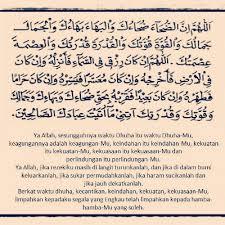 اَللّٰهُمَّ اِنَّ الضُّحَآءَ ضُحَاءُكَ وَالْبَهَاءَ بَهَاءُكَ وَالْجَمَالَ
جَمَالُكَ وَالْقُوَّةَ قُوَّتُكَ وَالْقُدْرَةَ قُدْرَتُكَ وَالْعِصْمَةَ
عِصْمَتُكَ اَللّٰهُمَّ اِنْ كَانَ رِزْقِى فِى السَّمَآءِ فَأَنْزِلْهُ وَاِنْ كَانَ
فِى اْلاَرْضِ فَأَخْرِجْهُ وَاِنْ كَانَ مُعَسَّرًا فَيَسِّرْهُ وَاِنْ كَانَ حَرَامًا
فَطَهِّرْهُ وَاِنْ كَانَ بَعِيْدًا فَقَرِّبْهُ بِحَقِّ ضُحَاءِكَ وَبَهَاءِكَ وَجَمَالِكَ
وَقُوَّتِكَ وَقُدْرَتِكَ آتِنِى مَآاَتَيْتَ عِبَادَكَ الصَّالِحِيْنَ
Ya Allah, sesungguhnya waktu Dhuha itu waktu Dhuha-Mu,
keagungannya adalah keagungan-Mu, keindahan itu keindahan-Mu, kekuatan
itu kekuatan-Mu, kekuasaan itu kekuasaan-Mu dan
perlindungan itu perlindungan-Mu.
Ya Allah, jika rezekiku masih di langit turunkanlah, dan jika di dalam bumi
keluarkanlah, jika sukar permudahkanlah, jika haram sucikanlah dan
jika jauh dekatkanlah.
Berkat waktu dhuha, kecantikan, keindahan, kekuatan, kekuasaan-Mu,
limpahkan kepadaku segala yang Engkau telah limpahkan kepada hamba-
hamba-Mu yang soleh.